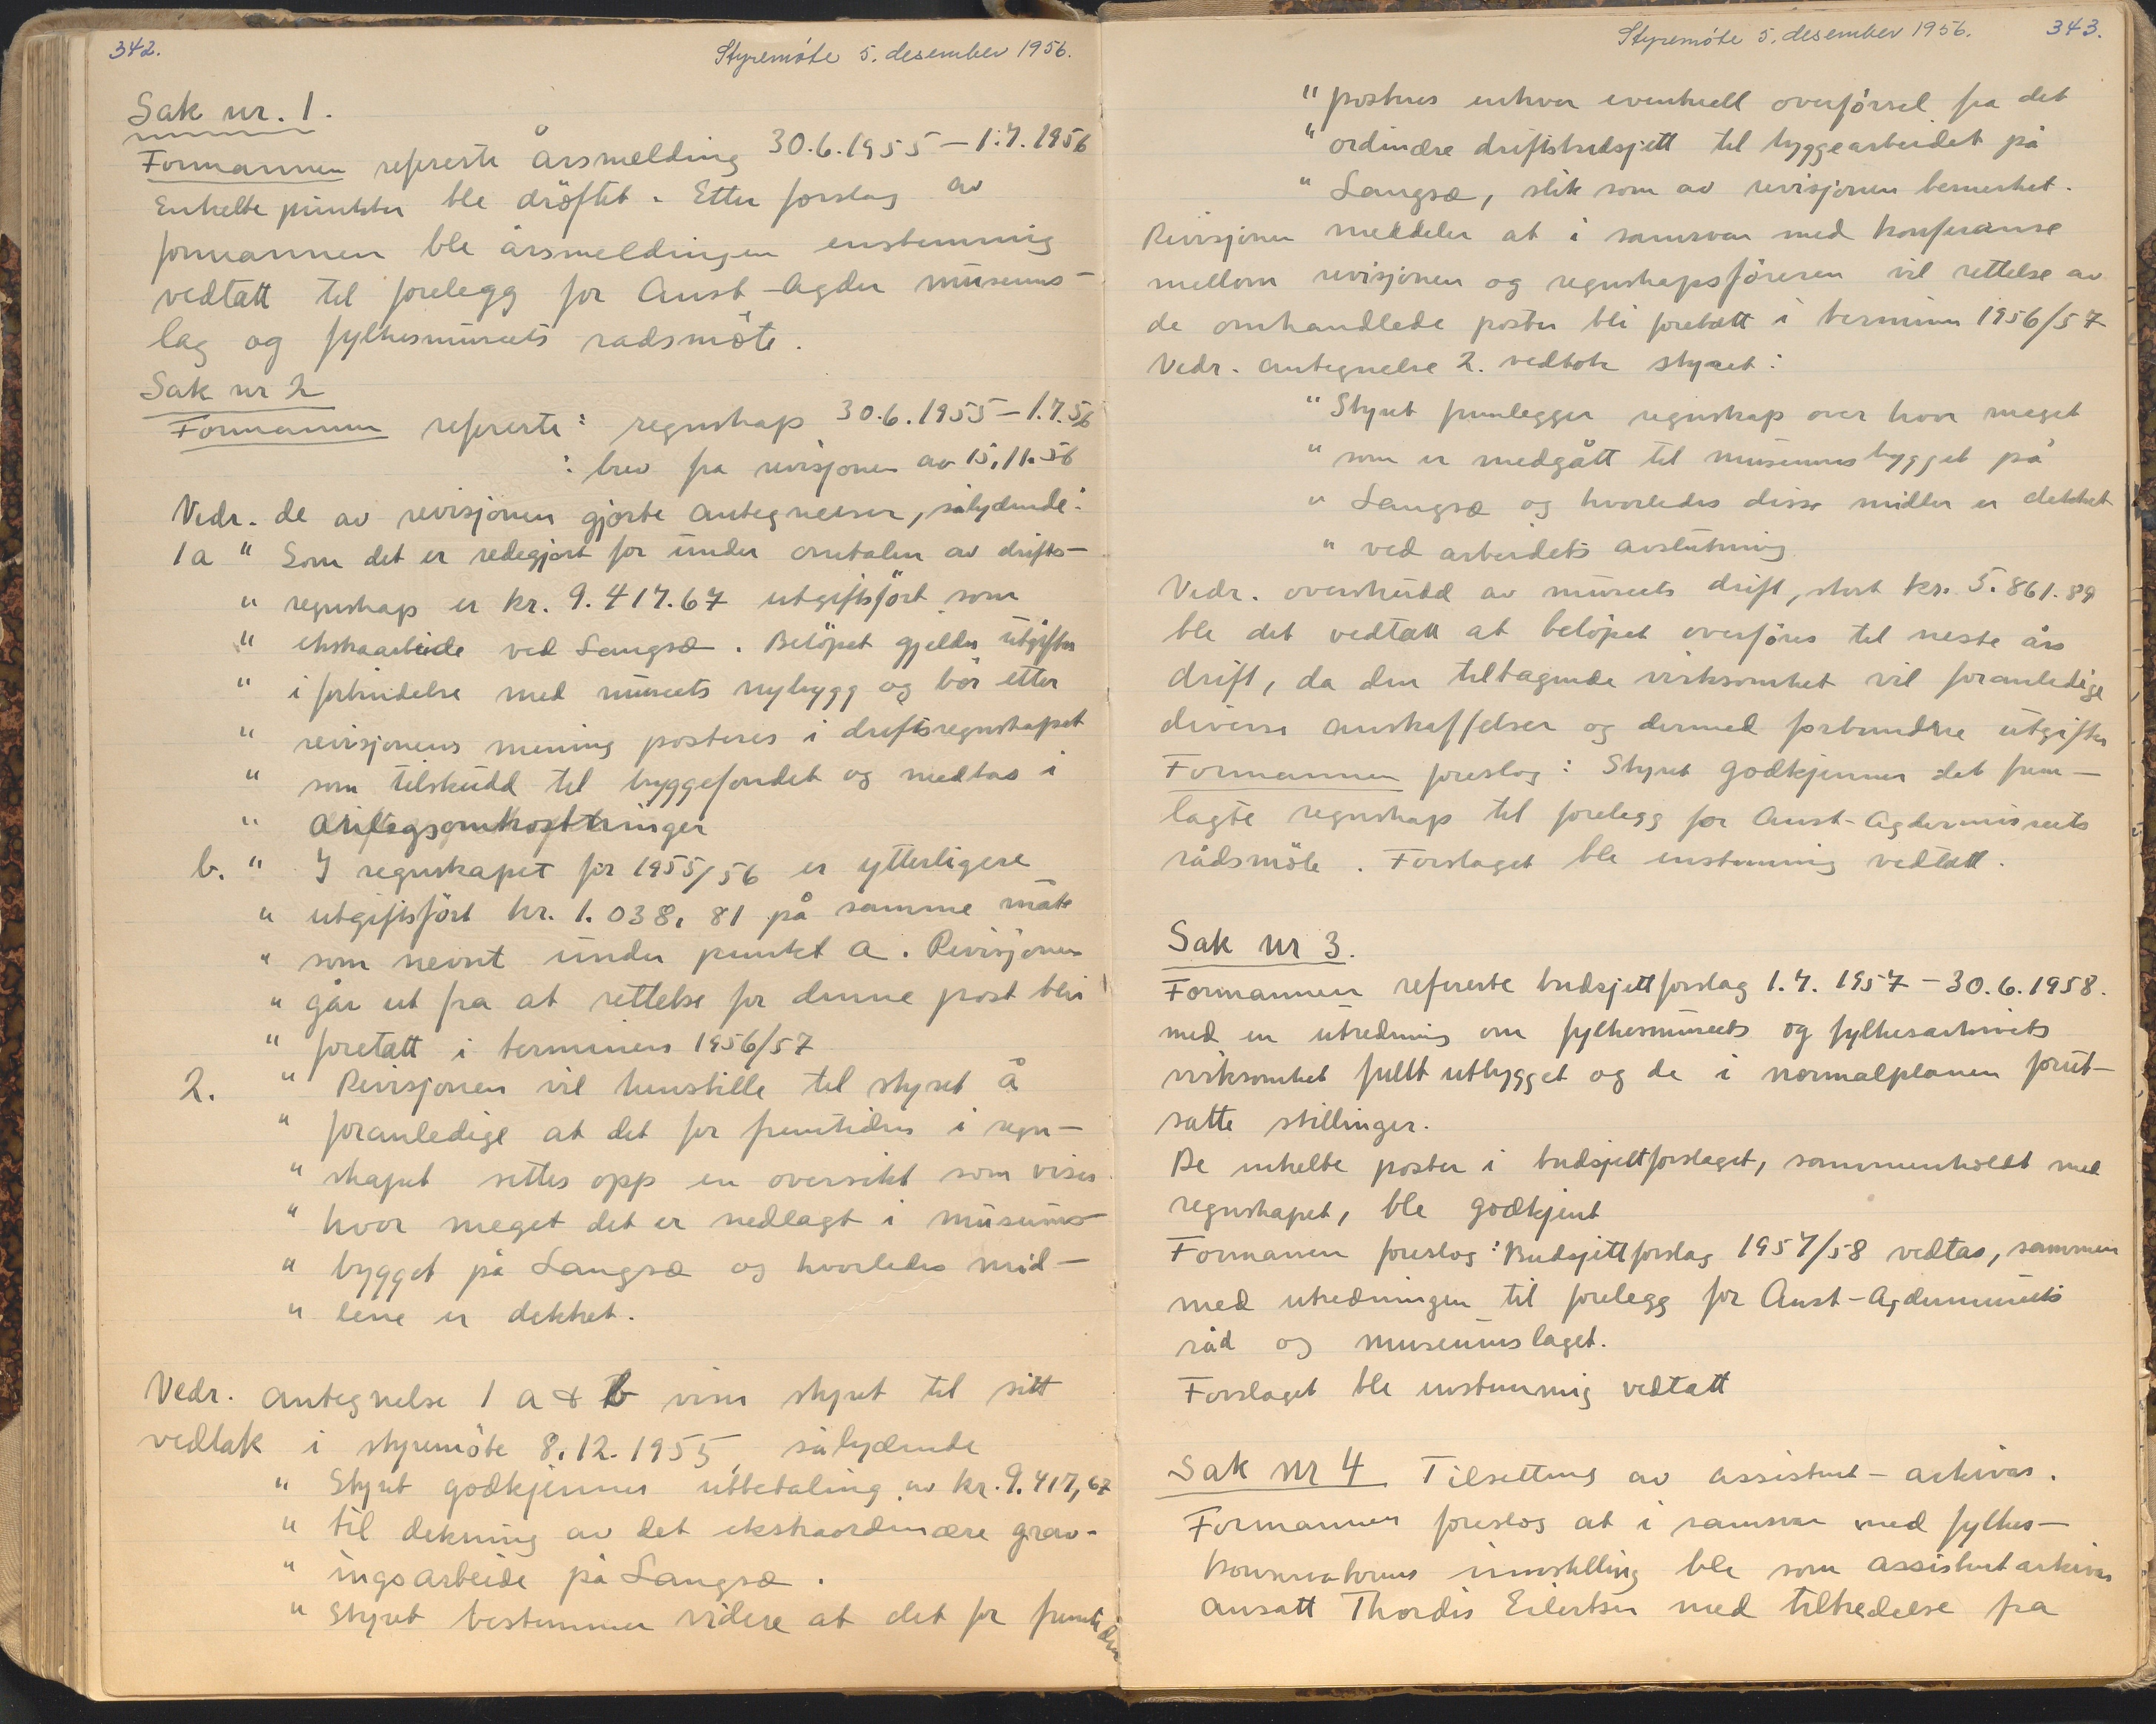 342.
Styremöte 5. desember 1956.
Sak nr. 1.
Formannen refererte årsmelding 30.6.1955 – 1.7.1956
Enkelte punkter ble dröftet. Etter forslag av
formannen ble årsmeldingen enstemmig
vedtatt til forelegg for Aust-Agder museums-
lag og fylkesmuseets radsmöte.
Sak nr 2
Formannen refererte: regnskap 30.6.1955 – 1.7.56
: brev fra revisjonen av 15.11.56
Vedr. de av revisjonen gjorte antegnelser, sålydende:
1a " Som det er redegjort for under omtalen av drifts-
" regnskap er kr. 9.417.67 utgiftsfört som
" ekstraarbeide ved Langsæ. Belöpet gjelder utgifter
" i forbindelse med museets nybygg og bör etter
" revisjonens mening posteres i driftsregnskapet
" som tilskudd til byggefondet og medtas i
" anlegsomkostninger
b. " I regnskapet for 1955/56 er ytterligere
" utgiftsfört kr. 1.038,81 på samme måte
" som nevnt under punkt a. Revisjonen
" går ut fra at rettelse for denne post blir
" foretatt i terminen 1956/57
2. " Revisjonen vil henstille til styret å
" foranledige at det for fremtiden i regn-
" skapet settes opp en oversikt som viser
" hvor meget det er nedlagt i museums-
" bygget på Langsæ og hvorledes mid-
" lene er dekket.
Vedr. antegnelse 1 a & b viser styret til sitt
vedtak i styremöte 8.12.1955, sålydende
" Styret godkjenner utbetaling av kr. 9.417,67
" til dekning av det ekstraordinære grav-
" ingsarbeide på Langsæ.
" Styret bestemmer videre at det for fremtiden
Styremöte 5. desember 1956.
343.
" posteres enhver eventuell overförsel fra det
" ordinære driftsbudsjett til byggearbeidet på
" Langsæ, slik som av revisjonen bemerket.
Revisjonen meddeler at i samsvar med konferanse
mellom revisjonen og regnskapsföreren vil rettelse av
de omhandlede poster bli foretatt i terminen 1956/57
Vedr. antegnelse 2. vedtok styret:
" Styret fremlegger regnskap over hvor meget
" som er medgått til museumsbygget på
" Langsæ og hvorledes disse midler er dekket
" ved arbeidets avslutning
Vedr. overskudd av museets drift, stort kr. 5.861.89
ble det vedtatt at belöpet overföres til neste års
drift, da den tiltagende virksomhet vil foranledige
diverse anskaffelser og dermed forbundne utgifter
Formannen foreslog: Styret godkjenner det frem-
lagte regnskap til forelegg for Aust-Agdermuseets
rådsmöte. Forslaget ble enstemmig vedtatt.
Sak nr 3.
Formannen refererte budsjettforslag 1.7.1957 – 30.6.1958.
med en utredning om fylkesmuseets og fylkesarkivets
virksomhet fullt utbygget og de i normalplanen forut-
satte stillinger.
De enkelte poster i budsjettforslaget, sammenholdt med
regnskapet, ble godkjent
Formannen foreslog: Budsjettforslag 1957/58 vedtas, sammen
med utredningen til forelegg for Aust-Agdermuseets
råd og museumslaget.
Forslaget ble enstemmig vedtatt
Sak nr 4 Tilsetting av assistent-arkivar.
Formannen foreslog at i samsvar med fylkes-
konservatorens innstilling ble som assistentarkivar
ansatt Thordis Eilertsen med tiltredelse fra